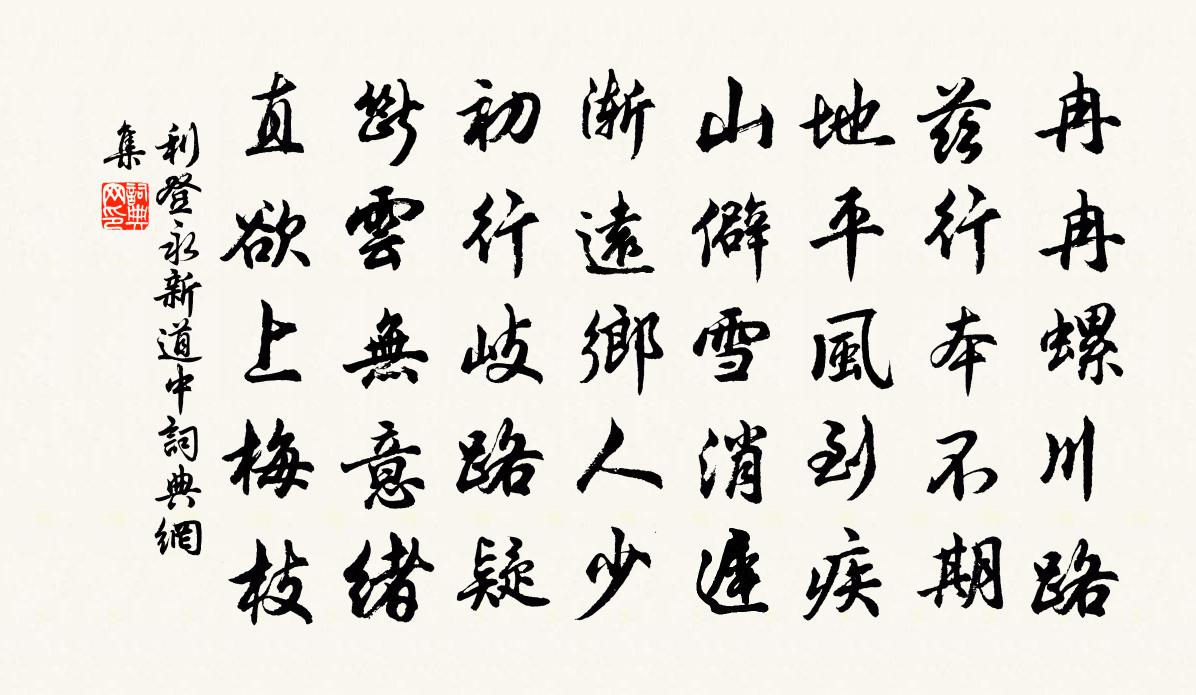 冉冉螺川路
茲行本不期
地平風到疾
山僻雪消遲
漸遠鄉人少
初行岐路疑
斷雲無意緒
直欲上梅枝
利登永新道中詞典網
集
詞典网印